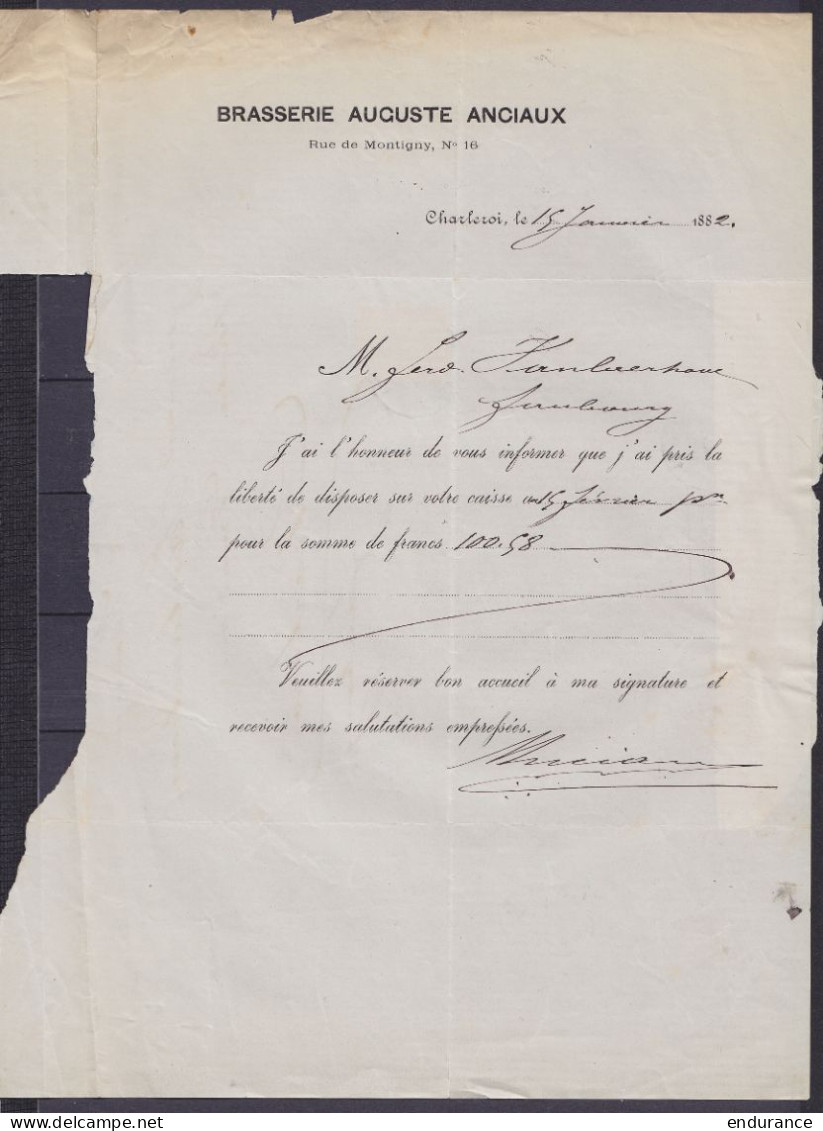 BRASSERIE AUGUSTE ANCIAUX
Rue de Montigny, No 16
Charleroi, le 15 Janvier 1882.
M. Ferd.
Faubourg
J'ai l'honneur de vous informer que j'ai pris la
liberté de disposer sur votre caisse au 15 février pn
pour la somme de francs 100.58
Veuillez réserver bon accueil à ma signature et
recevoir mes salutations empressées.
Anciaux
delcampe.net
endurance